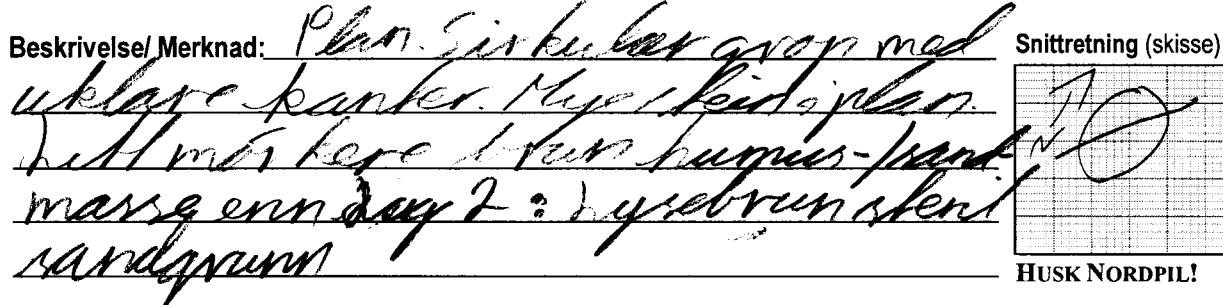 Beskrivelse/ Merknad: Plan. Sirkulær grop med
uklare kanter. Mye stein i plan.
Litt mørkere brun humus-/sand-
masse enn lag 2 : Lysebrun steril
sandgrunn
Snittretning (skisse)
N
HUSK NORDPIL!